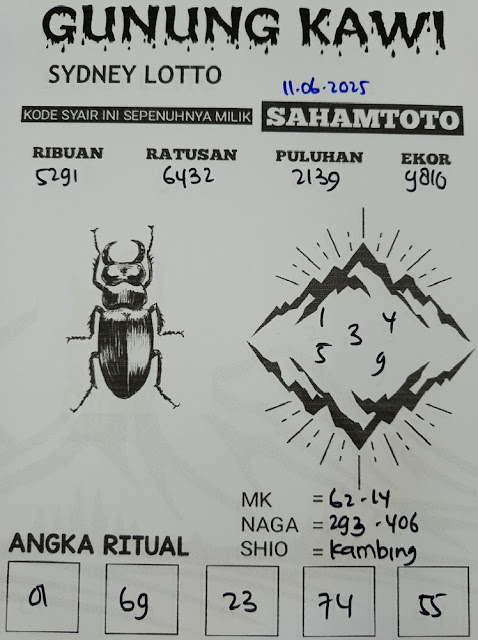 GUNUNG KAWI
SYDNEY LOTTO
11.06.2025
KODE SYAIR INI SEPENUHNYA MILIK SAHAMTOTO
RIBUAN RATUSAN PULUHAN EKOR
5291 6432 2139 9810
1 4
3
5 9
MK = 62-14
NAGA = 293-406
SHIO = Kambing
ANGKA RITUAL
01 69 23 74 55